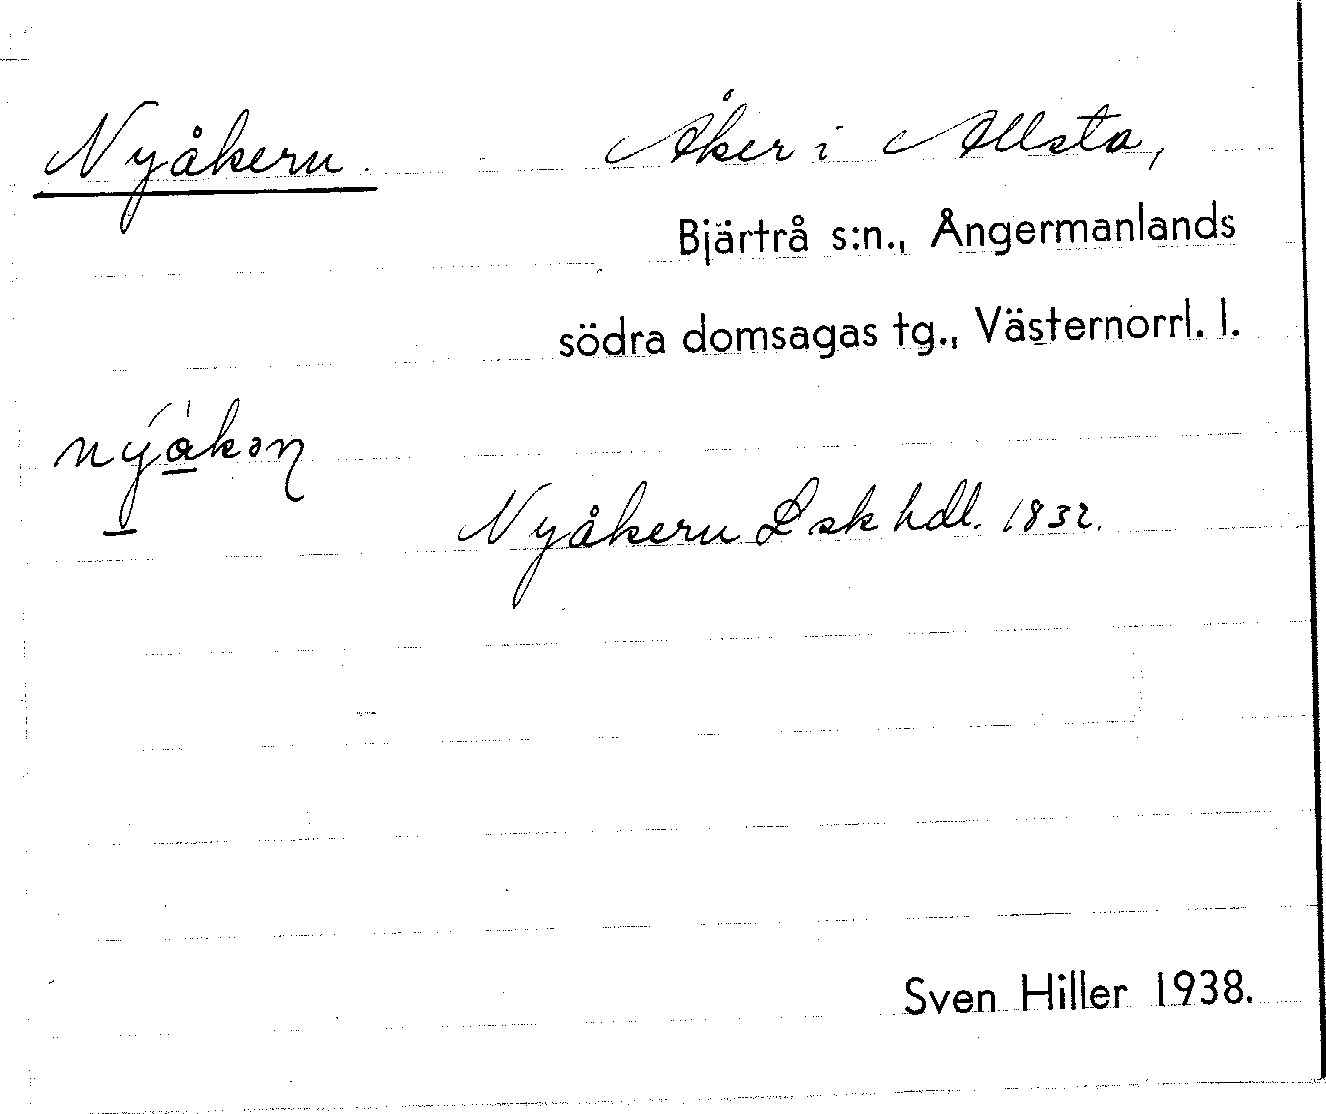 Nyåkern. Åker i Allsta,
Bjärtrå s:n., Ångermanlands
södra domsagas tg., Västernorrl. l.
Nyåkern Lsk hdl. 1832.
Sven Hiller 1938.